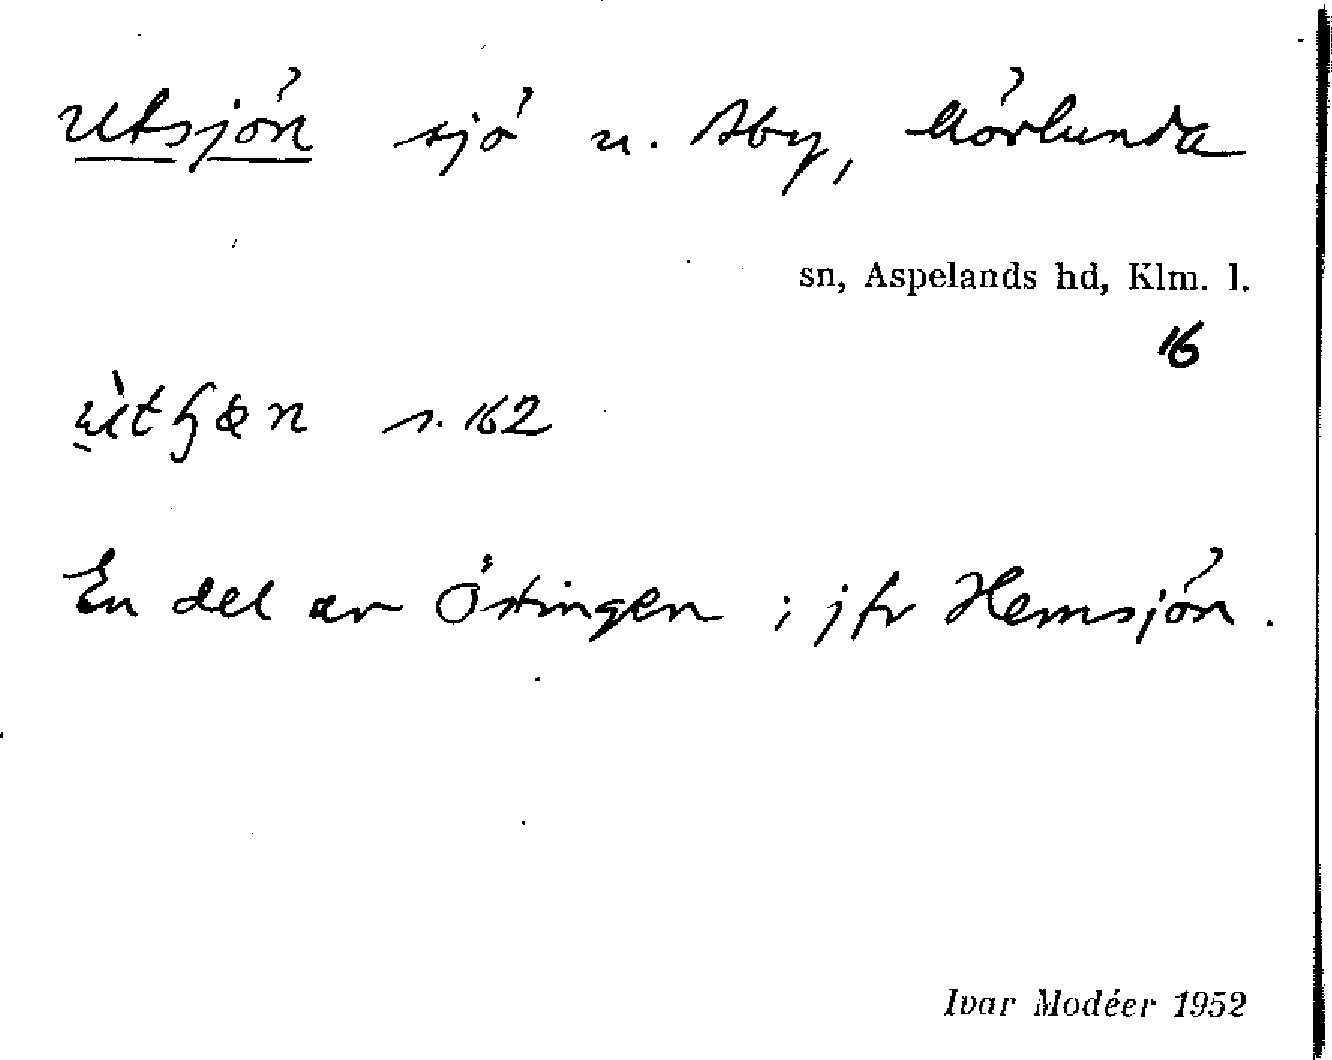 Utsjön sjö u. Åby, Mörlunda
sn, Aspelands hd, Klm. l.
16
s. 162
En del av Östingen ; jfr Hemsjön.
Ivar Modéer 1952